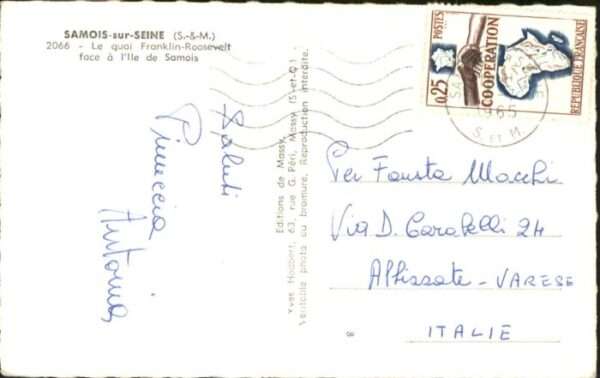 SAMOIS-sur-SEINE (S.-&-M.)
2066 - Le quai Franklin-Roosevelt
face à l'Ile de Samois
Saluti
Pinuccia
Antonia
Editions de Massy
Yves Humbert, 63, rue G. Péri, Massy (S.-et-O.)
Véritable photo au bromure. Reproduction interdite.
8
POSTES
0,25
COOPÉRATION
RÉPUBLIQUE FRANÇAISE
1965
S. ET M.
Per Fausta Macchi
Via D. Caratelli 24
Albissate - VARESE
ITALIE